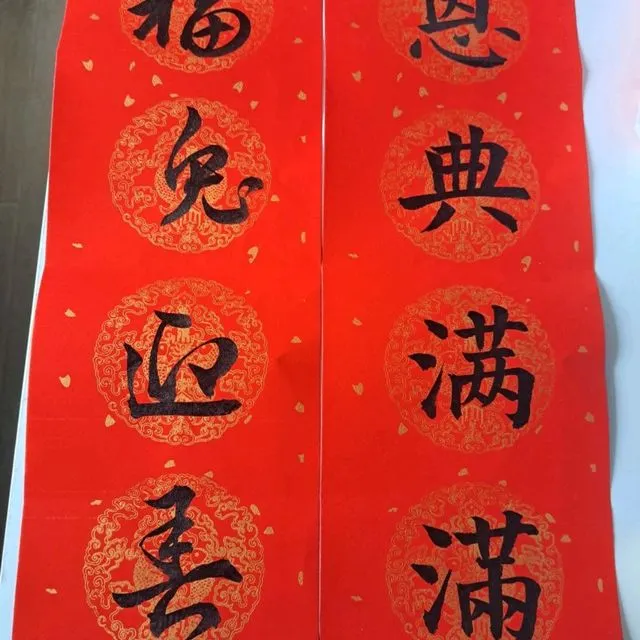 恩典满滿
福兔迎春